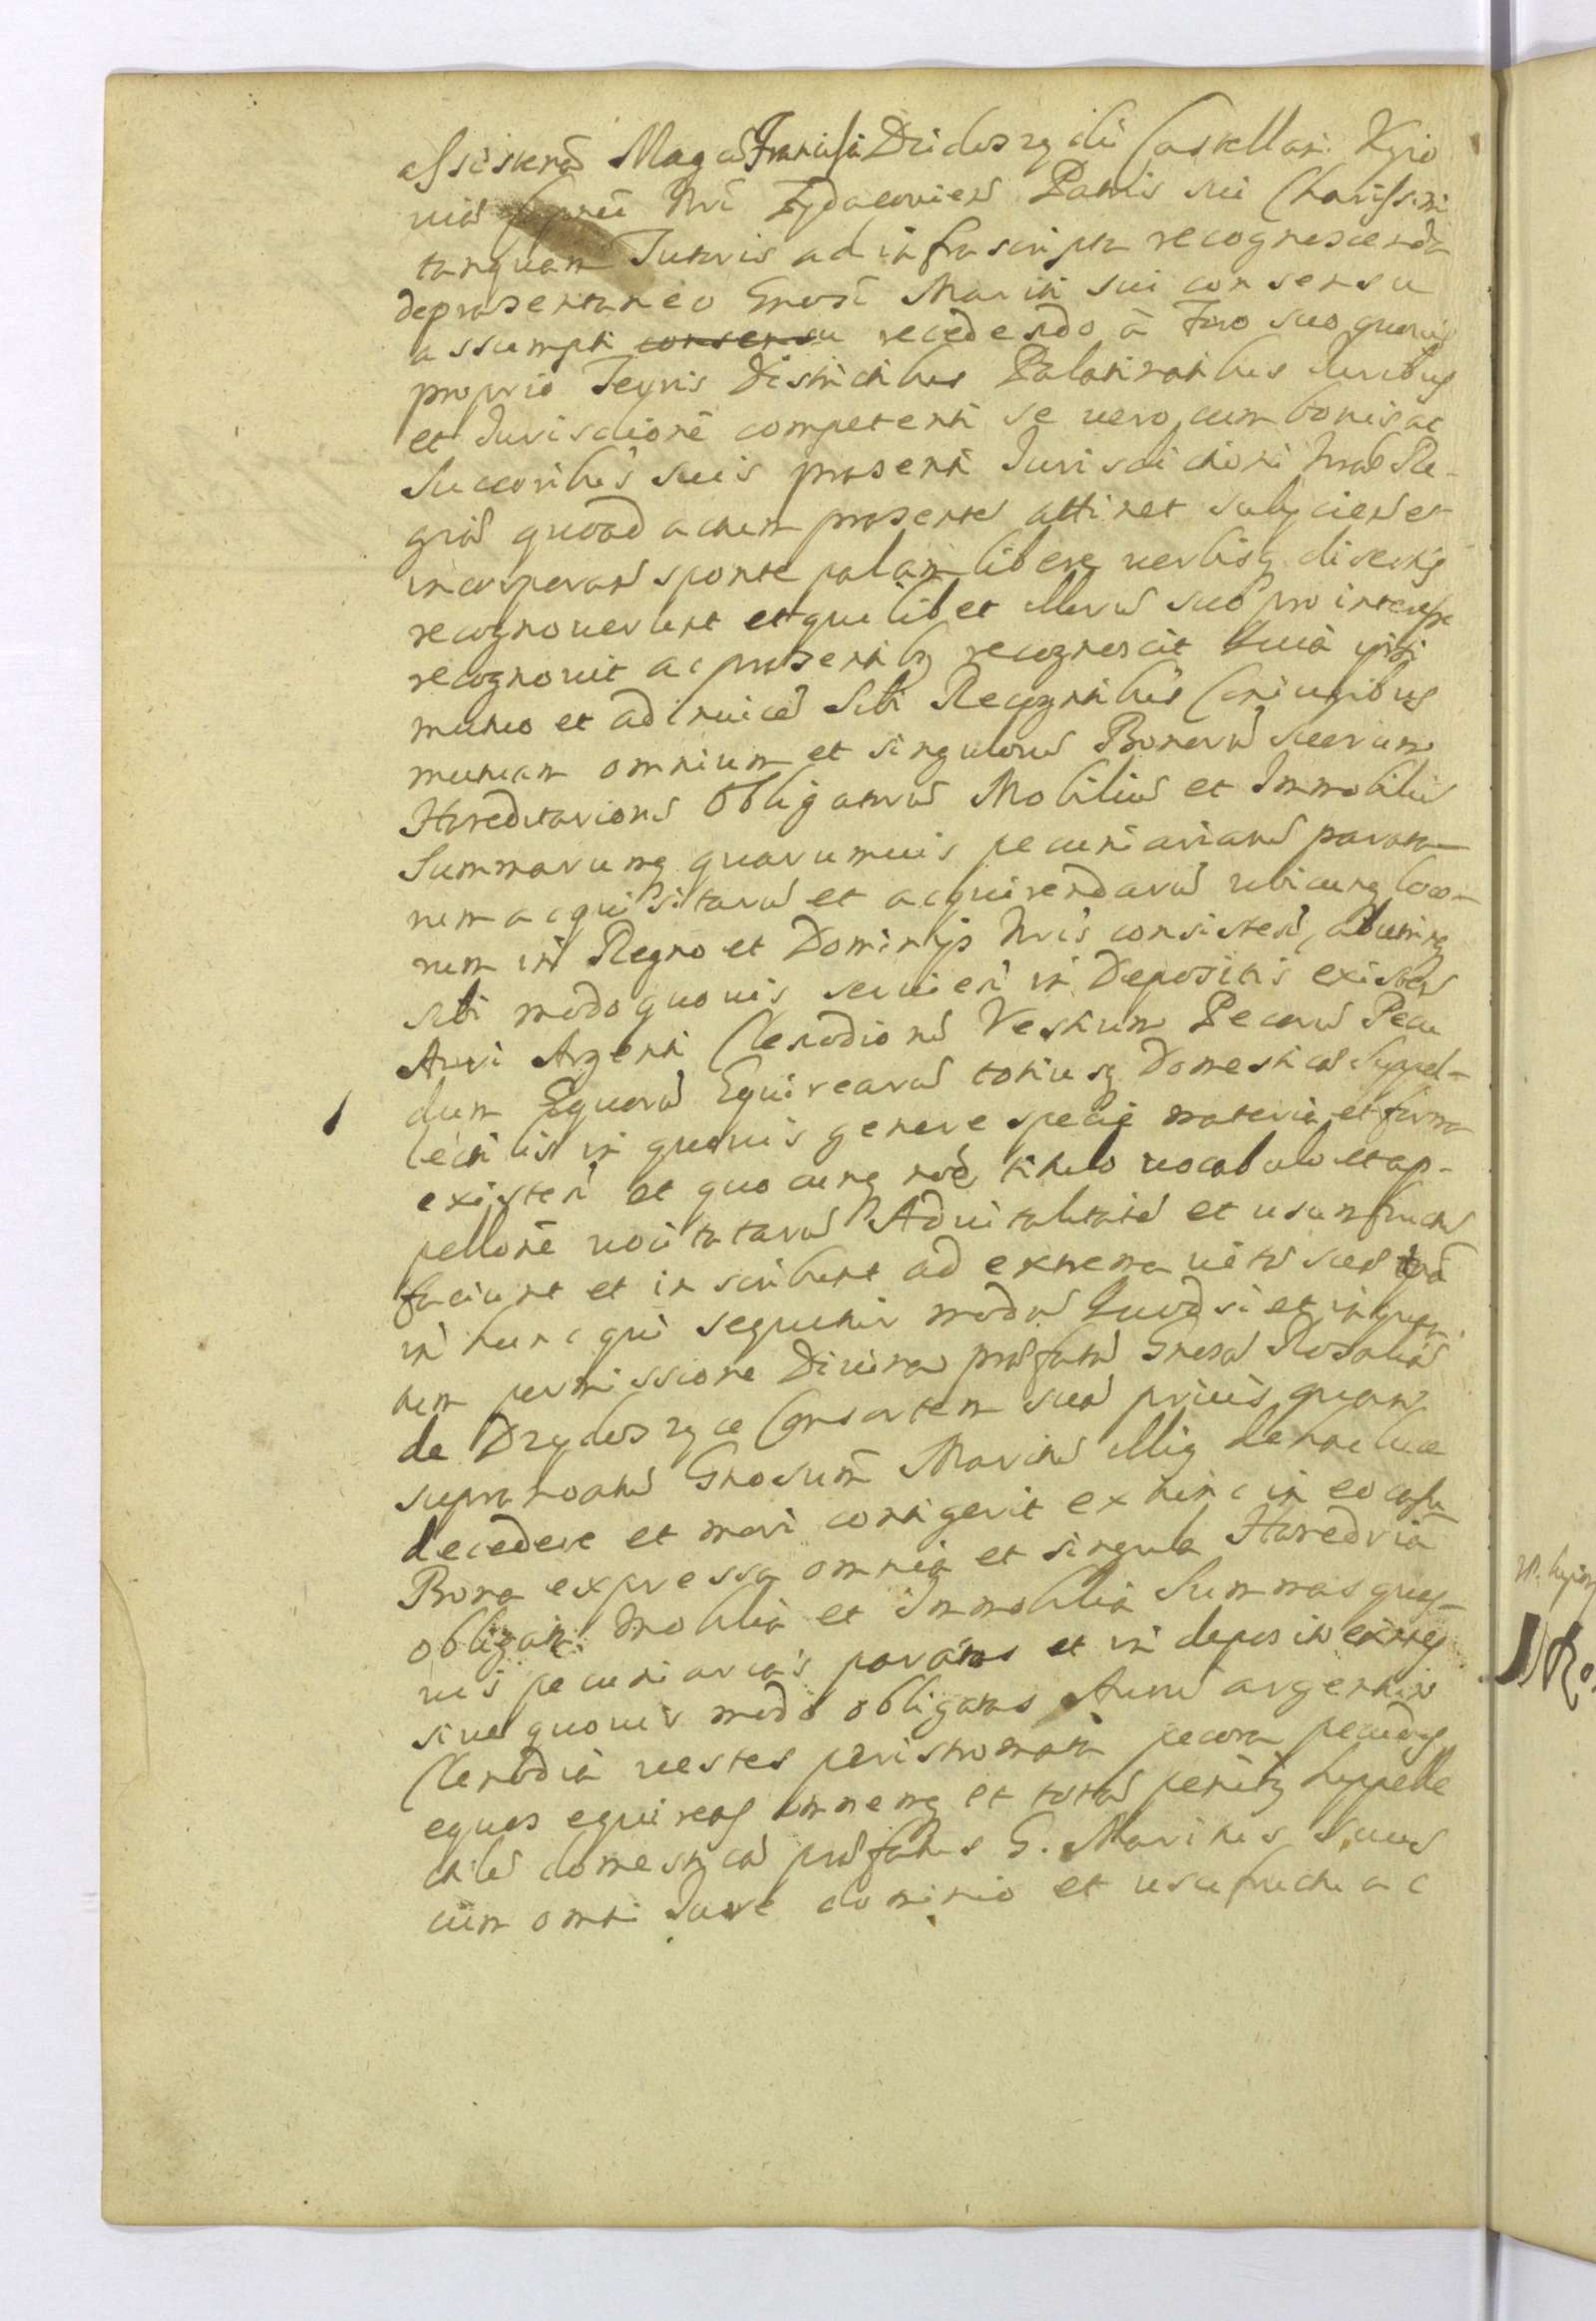 assisten Magci Francisci Dzieduszycki Castellani Kyio
vien Capnei Nri Zydaczovien Patris sui Charissimi
tanquam Tutoris ad infra scripta recognoscenda
de praesentaneo Gnosi Mariti sui consensu
assumpti consensu recedendo à Foro suo quovis
proprio Terris Districtibus Palatinatibus Iuribus
et Iurisdione competenti se vero cum bonis ac
Succoribus suis praesenti Iurisdictioni Pntis Re-
gia quoad actum praesentem attinet subjicien et
incorporan sponte palam libere verbisq disertis
recognoverunt et quilibet illorum suo pro interesse
recognovit ac praesentibq recognoscit Quia ipsi
mutuo et ad invicem Sibi Recognntibus Coniugibus
mutuam omnium et singulorum Bonorum suorum
Haereditariorum Obligatorum Mobilium et Immobilium
Summarumq quarumvis pecuniariarum parata-
rum acquisitarum et acquirendarum ubicunq loco-
rum in Regno et Dominijs Nris consisten, aliunq
sibi modo quovis servien in Depositis existen
Auri Argenti Clenodiorum Vestium Pecorum Pecu
dum Equorum Equirearum totiusq Domesticae Suppel-
lectilis in quovis genere specie materia et forma
existen et quocunq noe titulo vocabulo et ap-
pellone vocitatarum Advitalitatem et usumfructum
faciunt et inscribunt ad extrema vitae suae tpa
in hunc qui sequitur modum Quod si et in quan
tum permissione Divina praefatam Gnosam Rosaliam
de Dzyduszyce Consortem suam prius quam
supranoatum Gnosum Maritum illius ab hac luce
decedere et mori contigerit ex tunc in eo casu
Bona expressa omnia et singula Haeredria
obligata Mobilia et Immobilia Summas quas-
vis pecuniarias paratas et in deposito exntes
sive quovis modo obligatas Aurum argentum
Clenodia vestes peristromata pecora pecudes
equos equireas omnemq et totam penitus suppelle
ctilem domesticam praefatus G. Maritus suus
cum omni Iure dominio et usufructu ac